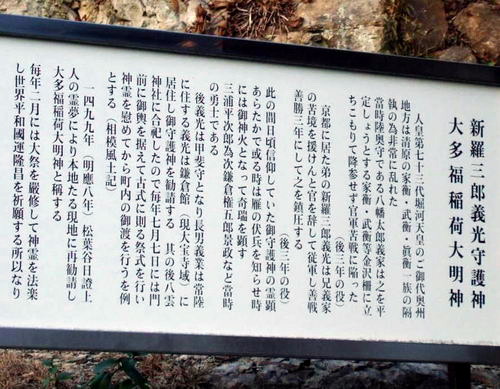 新羅三郎義光守護神
大多福稲荷大明神
人皇第七十三代堀河天皇のご御代奥州
地方は清原の家衡・武衡・眞衡一族の隔
執の為非常に乱れた　（後三年の役）
当時陸奥守である八幡太郎義家は之を平
定しようとする家衡・武衡等金沢柵に立
ちこもりて降参せず官軍苦戦に陥った
（後三年の役）
京都に居た弟の新羅三郎義光は兄義家
の苦境を援けんと官を辞して従軍し善戦
善勝三年にして之を鎮圧する
此の間日頃信仰していた御守護神の霊顕
あらたかで或る時は雁の伏兵を知らせ時
には御神火となって奇瑞を顕す
三浦平次郎為次鎌倉権五郎景政など当時
の勇士である
後義光は甲斐守となり長男義業は常陸
に住する義光は鎌倉館（現大宝寺域）に
居住し御守護神を勧請する　其の後八雲
神社に合祀したので毎年七月七日には門
前に御輿を据えて古式に則る祭式を行い
神霊を慰めてから町内の御渡を行うを例
とする（相模風土記）
一四九九年（明應八年）松葉谷日證上
人の霊夢により本地たる現地に再勧請し
大多福稲荷大明神と称する
毎年二月には大祭を厳修して神霊を法楽
し世界平和國運隆昌を祈願する所以なり